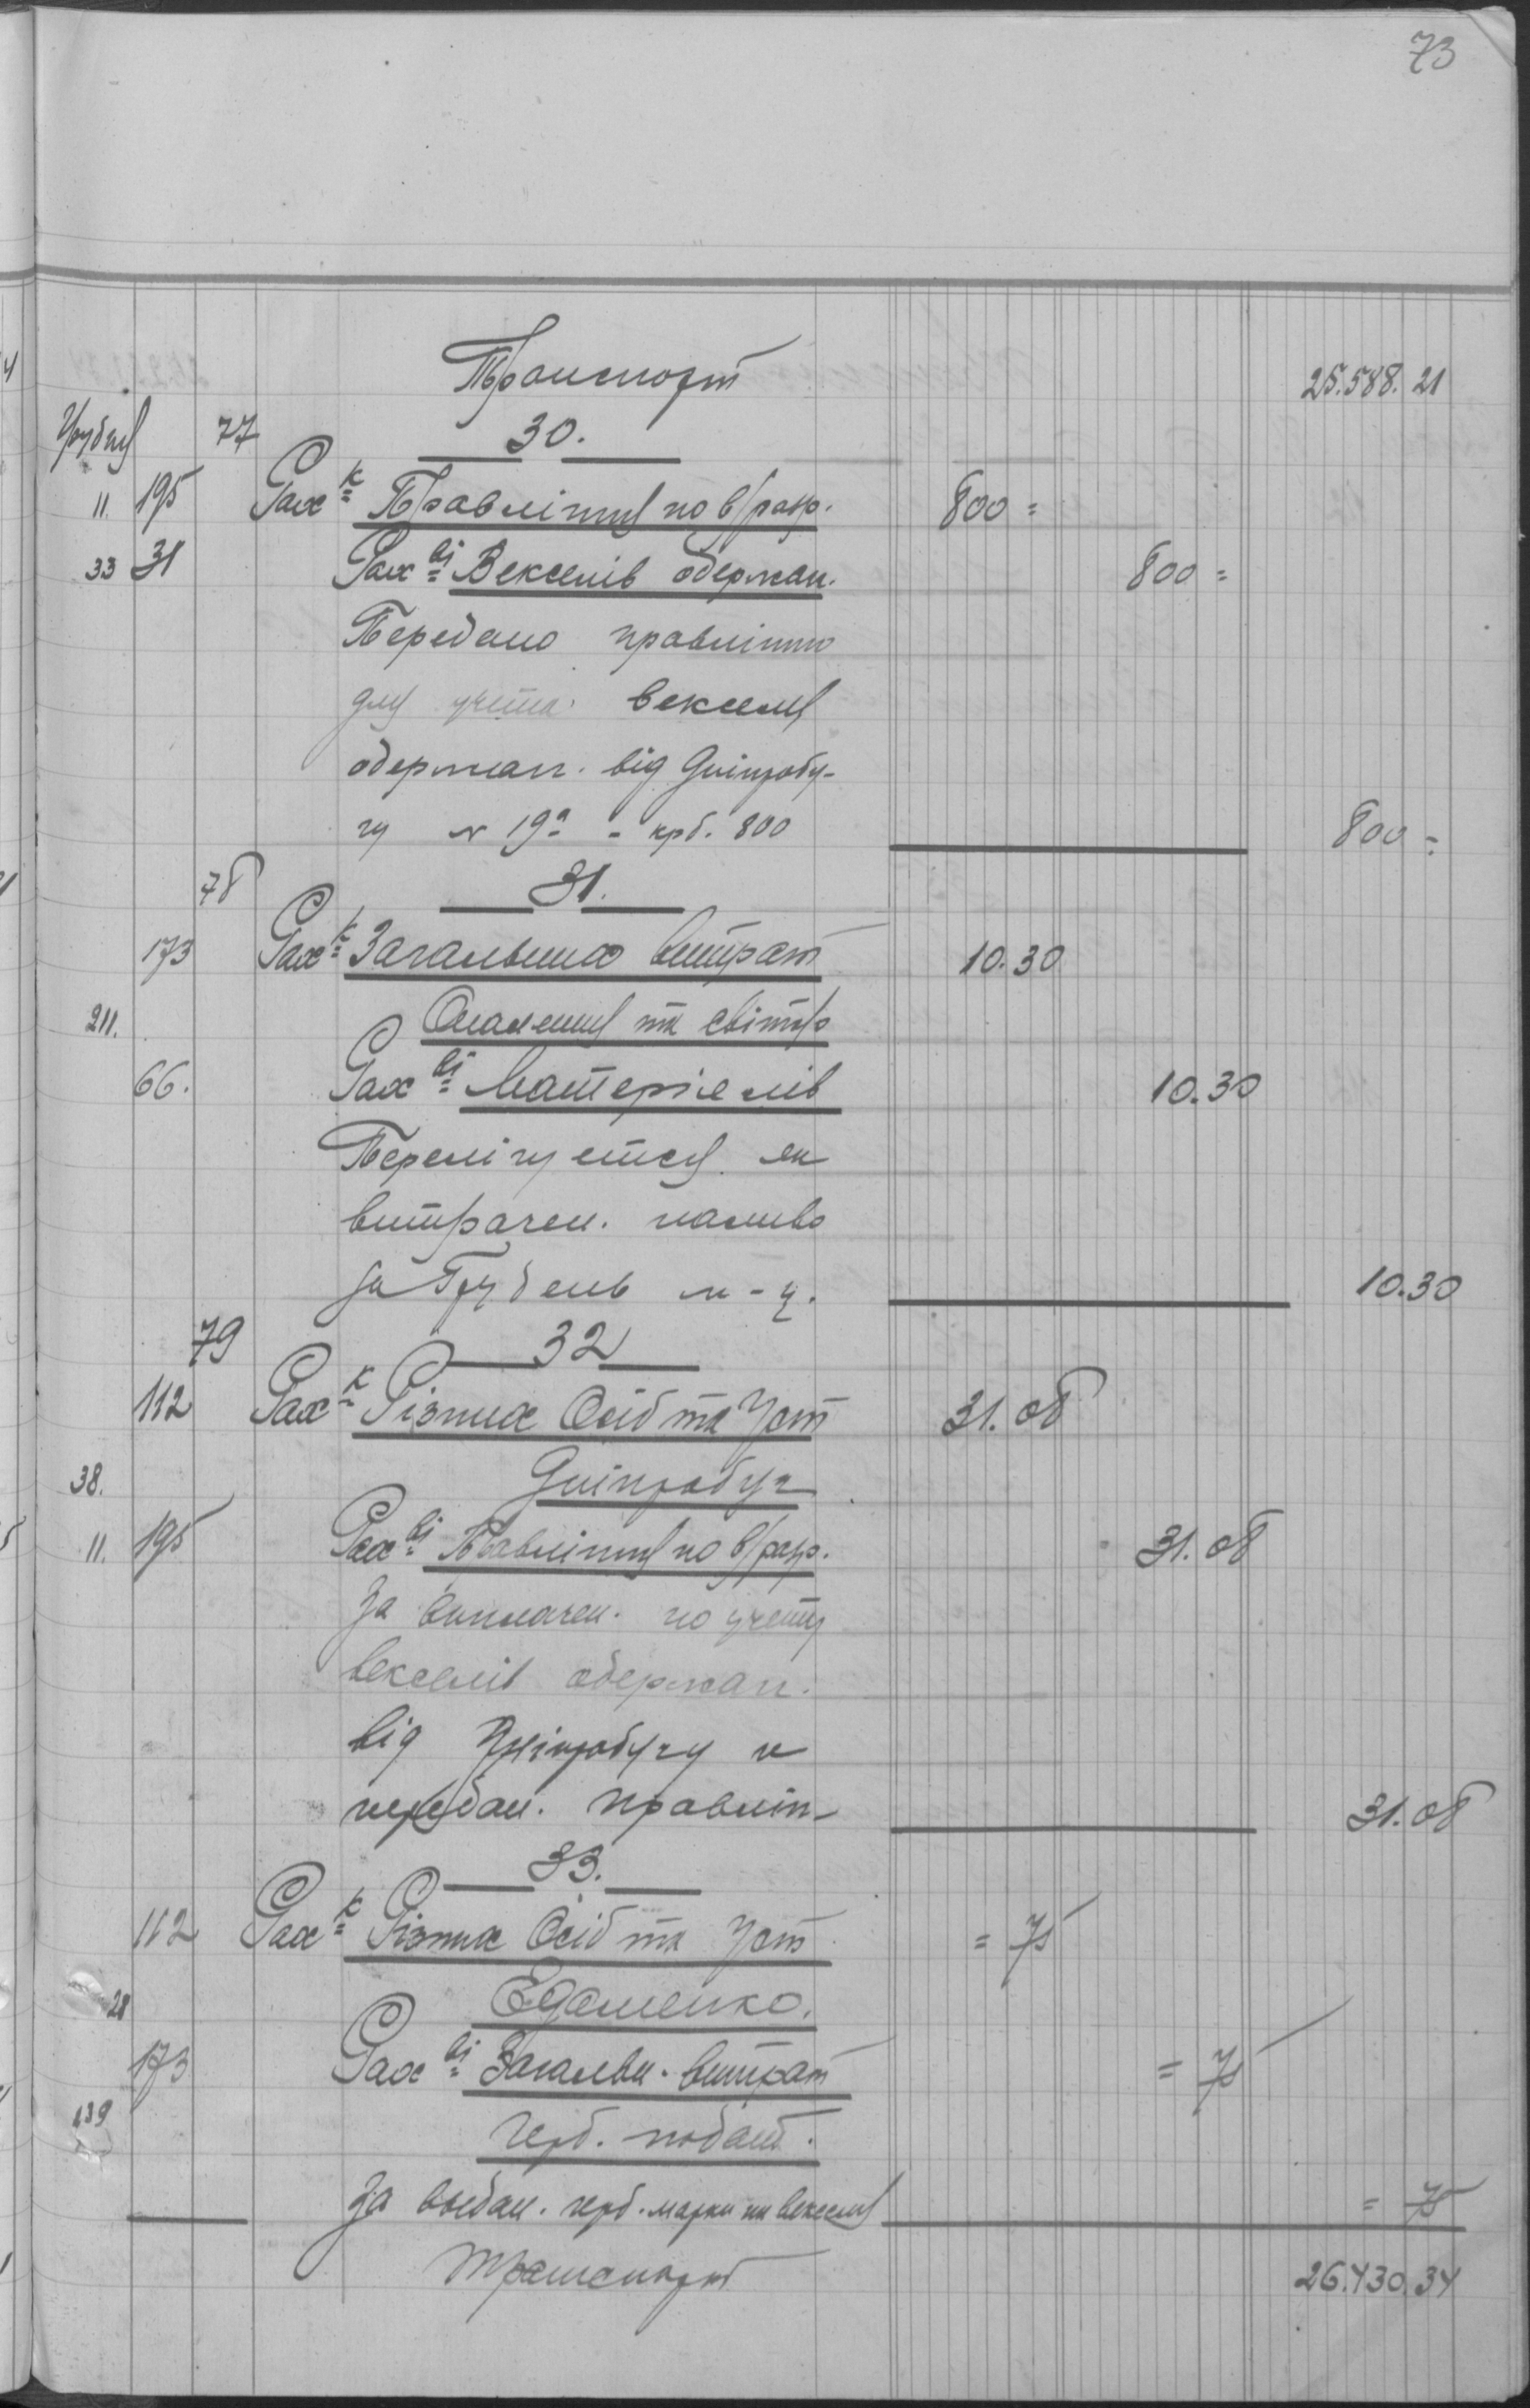 73
Транспорт 25.588.21
Грудня 77 30.
11. 195 Рах-к Правління по в/рахр. 800 =
33 31 Рах-ві Векселів одержан. 800 =
Передано правлінню
для учета векселя
одержан. від Дніпробу-
гу № 19а - крб. 800 800 =
78 31.
173 Рах-к Загальних витрат 10.30
211. Опалення та світло
66. Рах-ві Матеріялів 10.30
Перелічується як
витрачен. паливо
за Грудень м-ц. 10.30
79 32
112 Рах-к Різних Осіб та Уст 31.08
38. Дніпробуг
11. 195 Рах-ві Правління по в/рахр. 31.08
За виплачен. по учету
векселів одержан.
від Дніпробугу и
передан. правлін- 31.08
33.
112 Рах-к Різних Осіб та Уст = 75
28 Едаменко.
173 Рах-ві Загальн. витрат = 75
139 герб. подат.
За выдан. герб. марки на векселя = 75
Транспорт 26.430.34